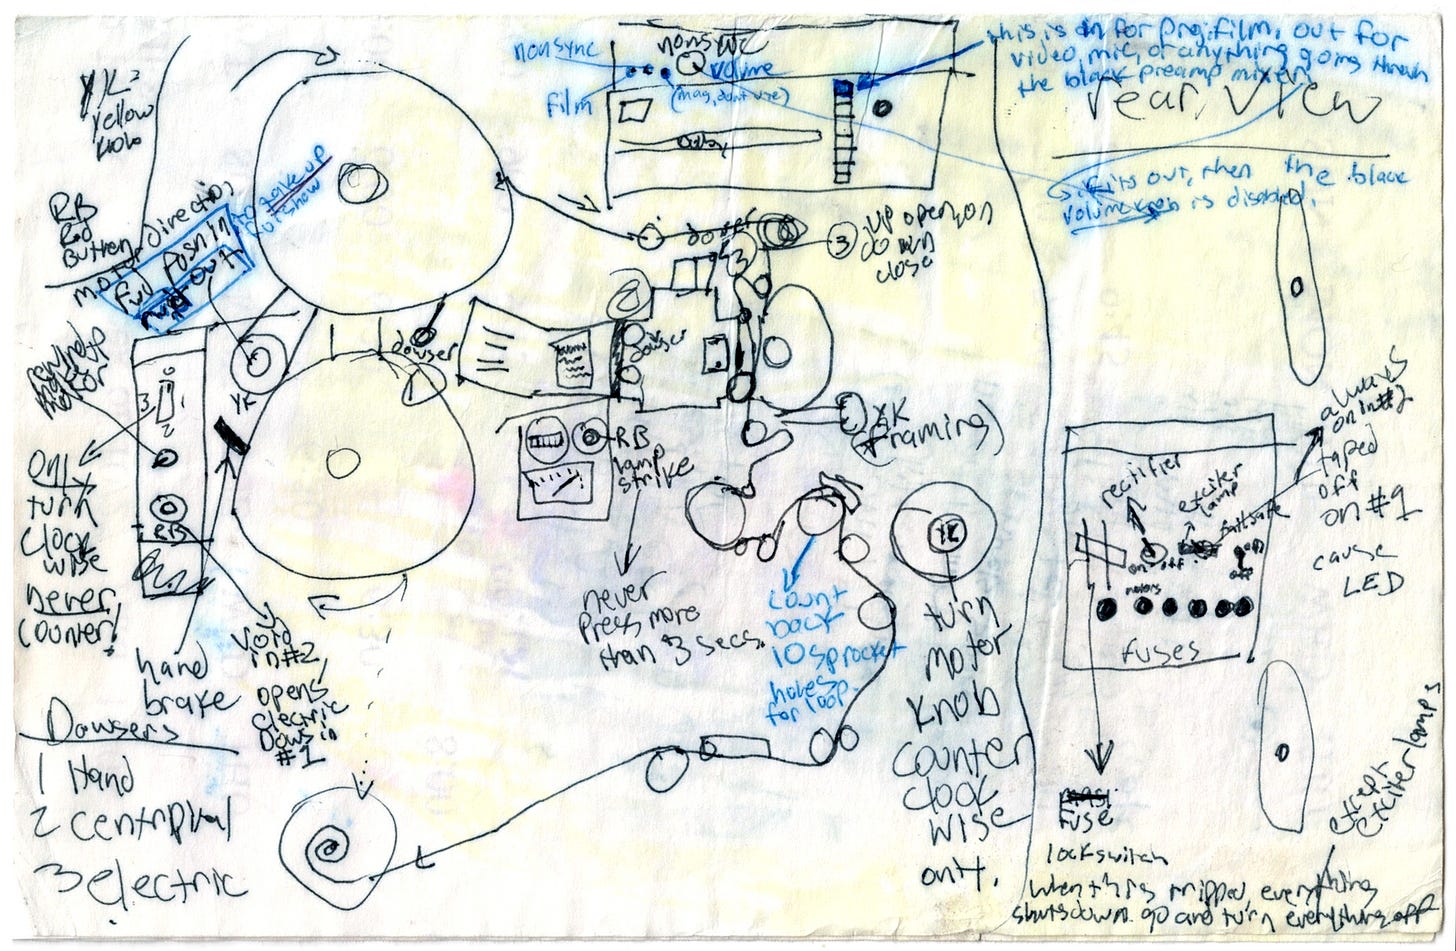 YK =
Yellow
Knob
RB
Red
Button
motor direction
full push in
out
to take up
show
nonsync
film
nonsync
volume
(mag, dont use)
Dolby
this is in for proj. film, out for
video, mic, or anything going through
the black preamp mixer.
rear view
if its out, then the black
volume knob is disabled.
dowser
3
3
up open, on
down
close
2
dowser
dowser
1
YK
(framing)
YK
motor
3
2
on
turn
clock
wise
never
counter!
RB
RB
lamp
strike
never
press more
than 3 secs.
hand
brake
Void
in #2
opens
electric
Dows in
#1
count
back
10 sprocket
holes
for loop.
YK
turn
motor
knob
counter
clock
wise
only.
always
on in #2
taped
off
on #1
cause
LED
rectifier
exciter
lamp
failsafe
on
off
on
off
motors
fuses
fuse
lockswitch
when this is tripped, everything
shutsdown. go and turn everything off
except
exciter lamps
Dowsers
1 Hand
2 centripital
3 electric